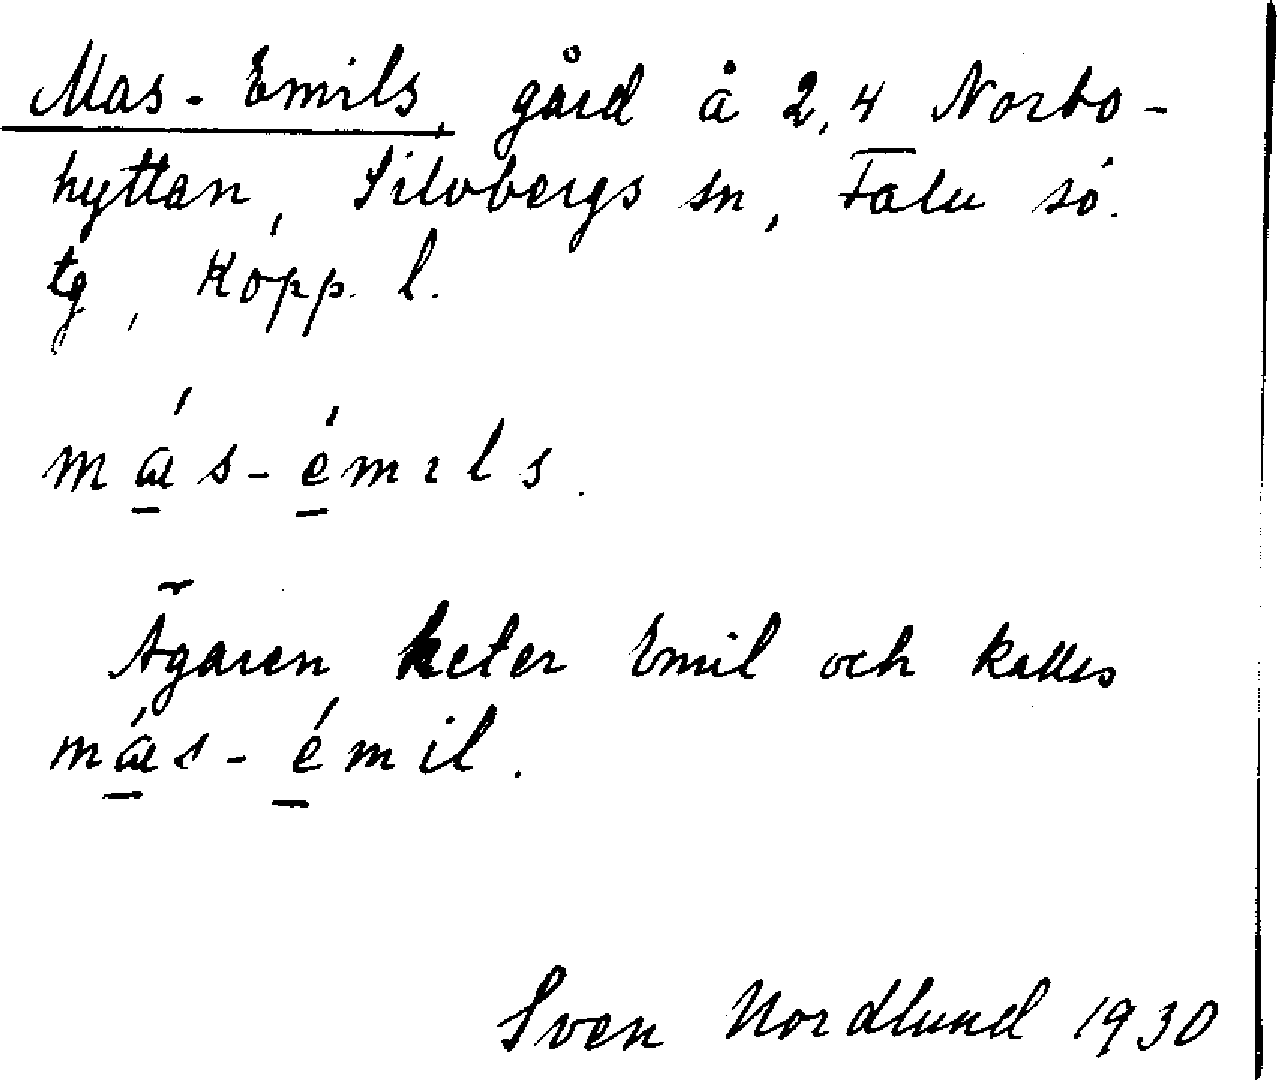 Mas-Emils, gård å 2,4 Norbo-
hyttan, Silvbergs sn, Falu sö.
tg, Kopp. l.
má̱s-é̱mıls.
Ägaren heter Emil och kallas
má̱s-é̱mil.
Sven Nordlund 1930